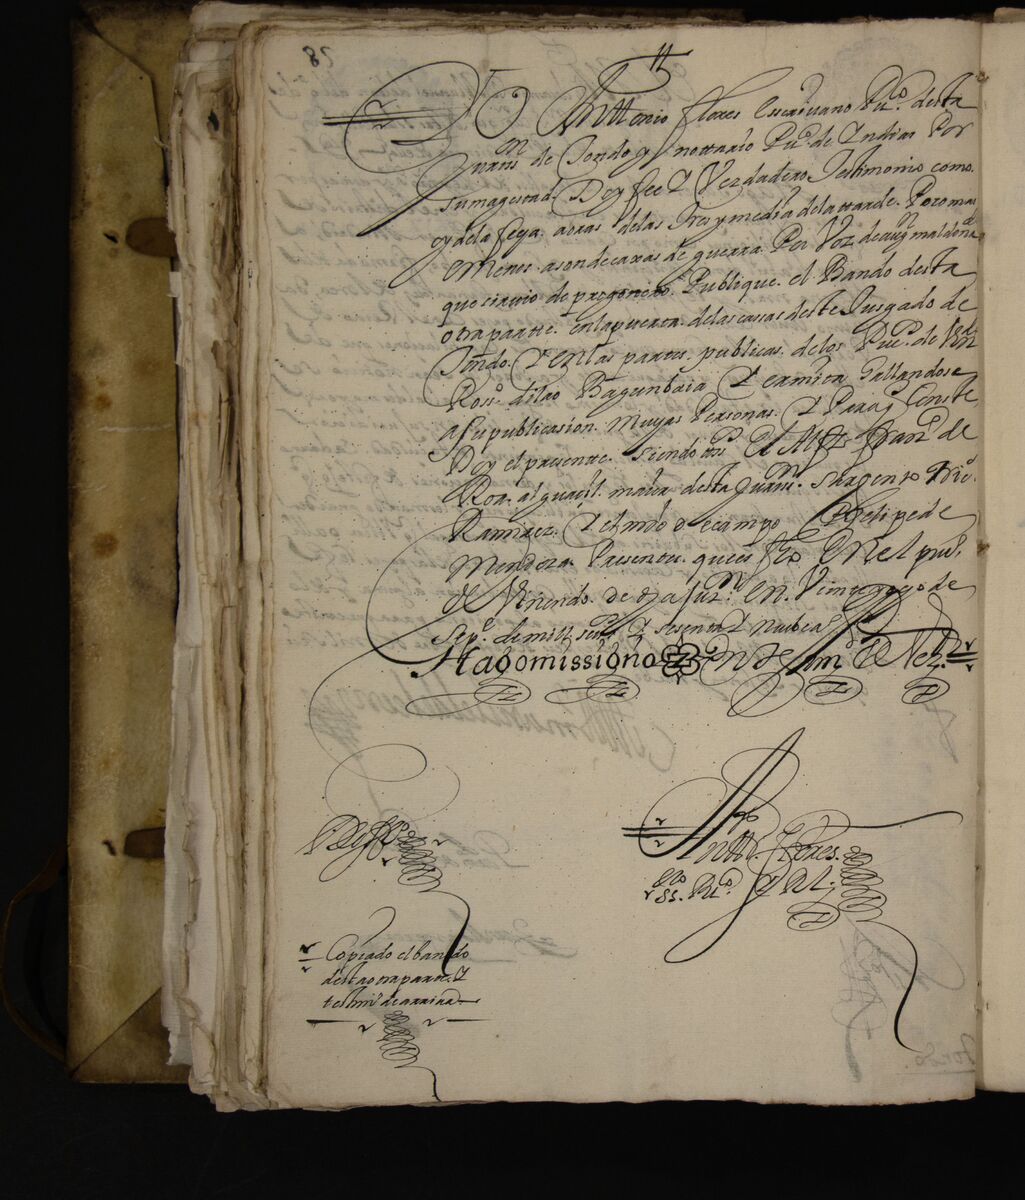 82
Yo Anttonio flores escrivano Puco. desta
Jurisn de Tondo y nottario Puco. de Indias Por
su magestad Doy fee Y Verdadero Testimonio como
oy dela feha aoras delas tres y media dela ttarde Poco mas
o Menos a son de caxas de guerra Por Voz de augn maldonado
que sirvio de pregonero. Publique. el Bando desta
otra parte. en la puerta. delas cassas deste Jusgado de
Tondo. Y en las partes. publicas. delos Puos. de
Ross. dilao Bagunbaia Y ermita hallandose
a su publicasion. muchas Personas. Y Para q Conste
Doy el presente. siendo ttos El Alfs. franco de
Roa. alguasil. maior desta Jurisn. Sargento
Ramirez. Y el mro de campo Phelipe de
Mendoza. Presentes. que es fho En el pueo.
de Minondo. de en Vinte y ocho de
Sepe. de mill seisos Y sesenta Y nuebe as
Hagomissigno en testimo de Verd.
Anttto flores.
Sno Puco. Y Rl.
Copiado el bando
desta otra parte. Y
testimo de arriba